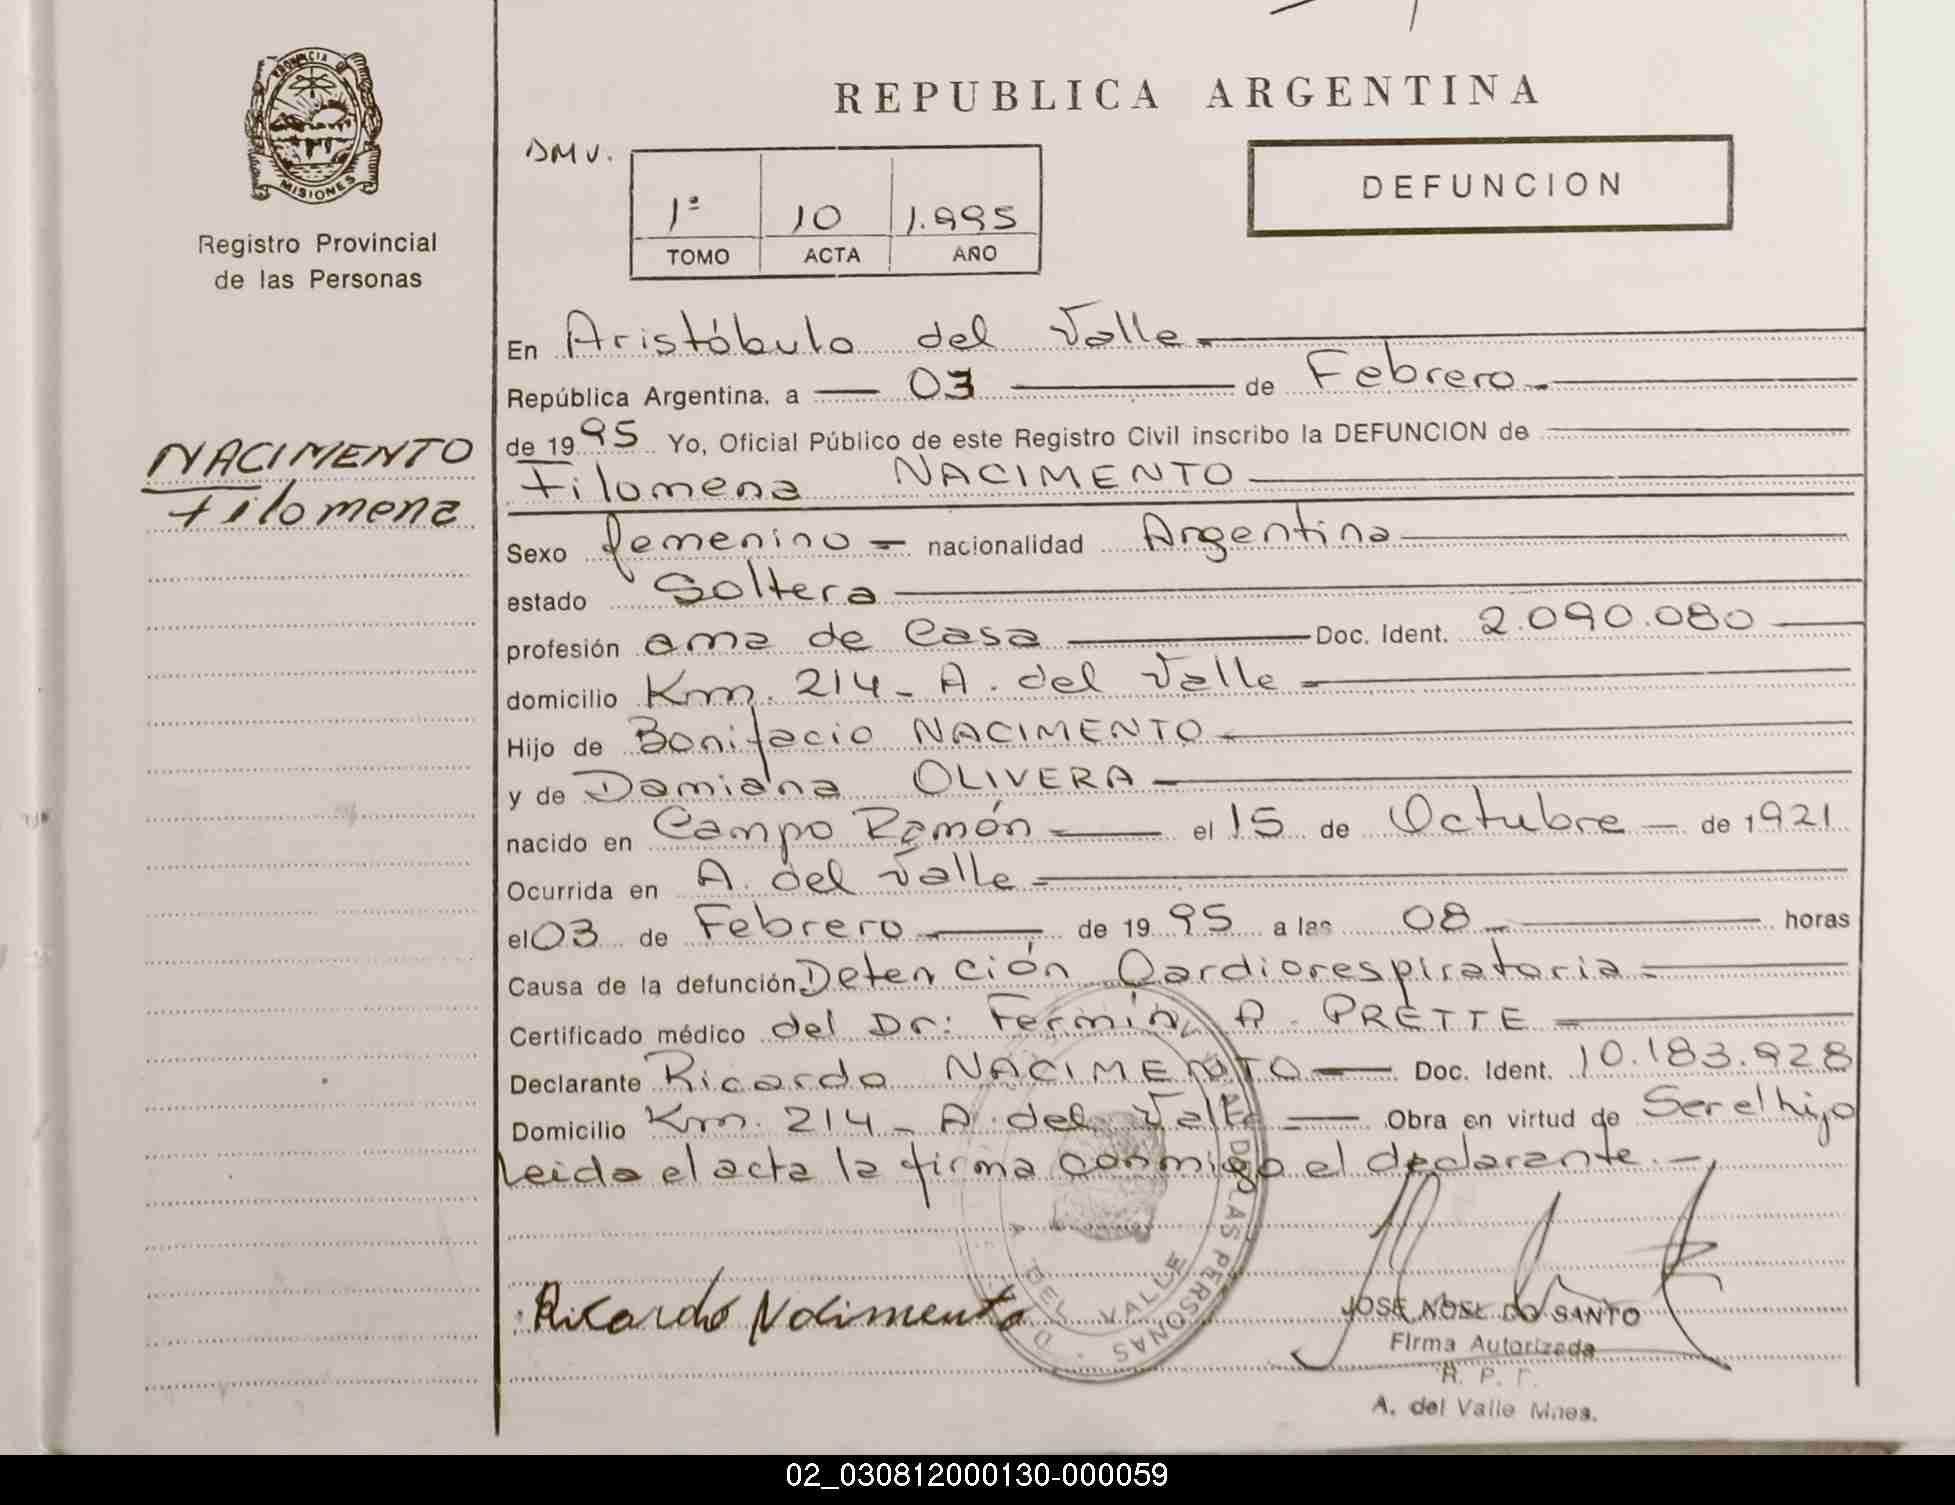 PROVINCIA DE
MISIONES
Registro Provincial
de las Personas
NACIMENTO
Filomena
REPUBLICA ARGENTINA
DMV.
1º 10 1.995
TOMO ACTA AÑO
DEFUNCION
En Aristóbulo del Valle.
República Argentina, a — 03 — de Febrero.-
de 1995 Yo, Oficial Público de este Registro Civil inscribo la DEFUNCION de
Filomena NACIMENTO
Sexo femenino - nacionalidad Argentina
estado Soltera
profesión ama de Casa Doc. Ident. 2.090.080
domicilio Km. 214 - A. del Valle
Hijo de Bonifacio NACIMENTO
y de Damiana OLIVERA
nacido en Campo Ramón el 15 de Octubre — de 1921
Ocurrida en A. del Valle
el 03 de Febrero de 1995 a las 08 horas
Causa de la defunción Detención Cardiorespiratoria
Certificado médico del Dr: Fermín, A. PRETTE
Declarante Ricardo NACIMENTO Doc. Ident. 10.183.928
Domicilio Km. 214 - A. del Valle — Obra en virtud de Ser el hijo
Leida el acta la firma conmigo el declarante.-
DE LAS PERSONAS
A. DEL VALLE
Ricardo Nacimento
JOSE NOEL DO SANTO
Firma Autorizada
R. P. P.
A. del Valle Mnes.
02_030812000130-000059